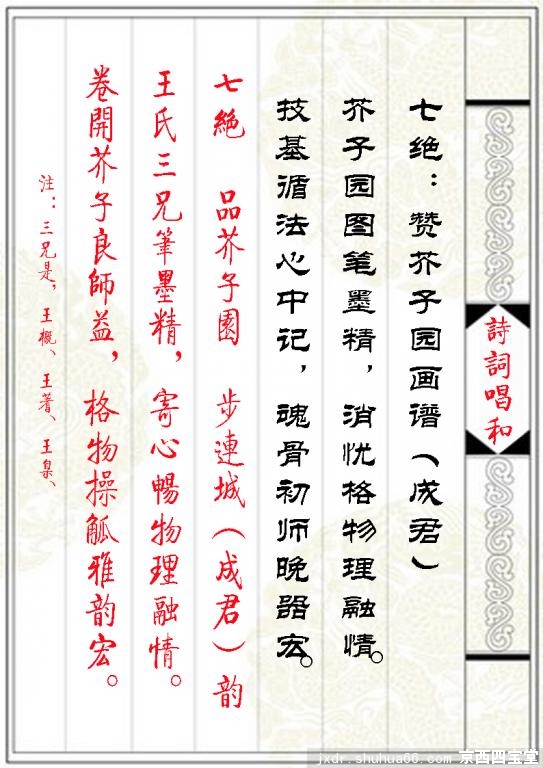 詩詞唱和
七绝：赞芥子园画谱（成君）
芥子园图笔墨精，消忧格物理融情。
技基循法心中记，魂骨初师晚器宏。
七絕 品芥子園 步連城（成君）韵
王氏三兄筆墨精，寄心暢物理融情。
卷開芥子良師益，格物操觚雅韵宏。
注：三兄是，王概、王蓍、王臬、
jxdr.shuhua06.com 京西四宝堂